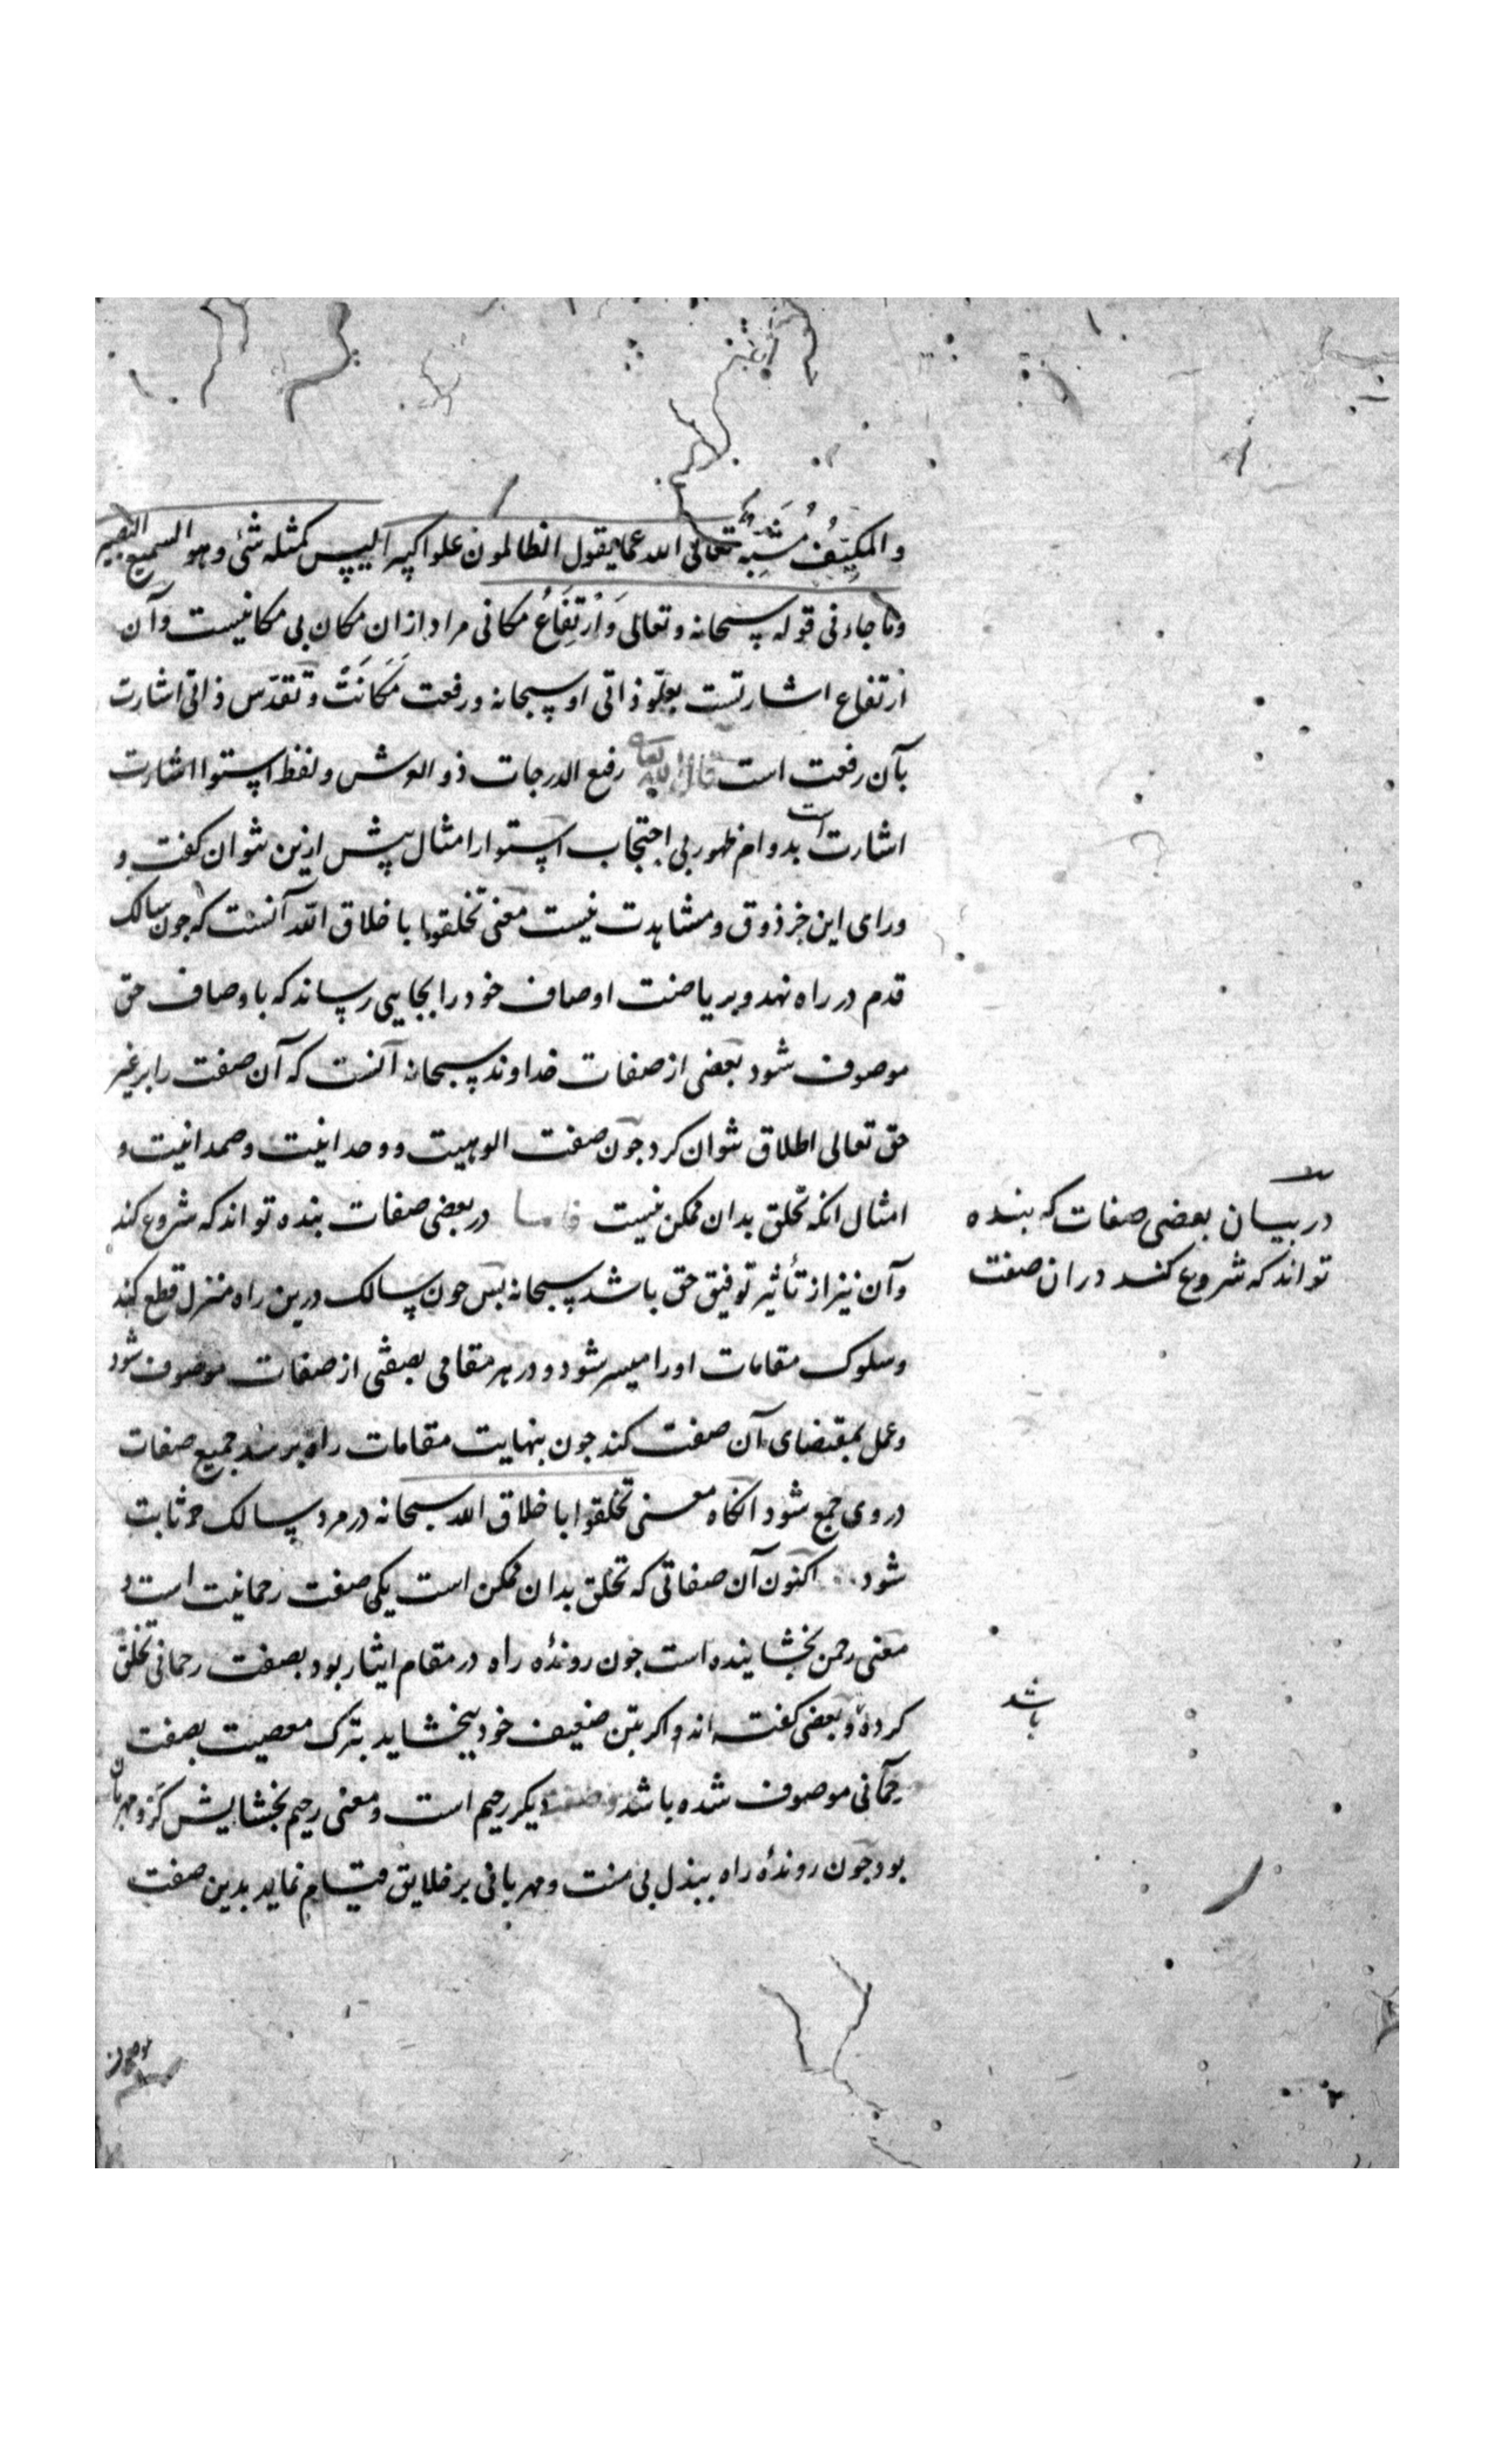 والمکیِّفُ مُشَبِّهٌ تعالی الله عما یقول الظالمون علوا کبیرا لیس کمثله شئ وهو السمیع البصیر
وما جاء فی قوله سبحانه و تعالی وَارْتِفَاعُ مکانی مراد ازان مکان بی مکانیست و آن
ارتفاع اشارتست بعلّو ذاتی او سبحانه و رفعت مَکَانَتْ و تقدّس ذاتی اشارت
بآن رفعت است قال الله تعالی رفیع الدرجات ذو العرش و لفظ استوا اشارت
اشارت است بدوام ظهور بی احتجاب استوار امثال بیش ازین نتوان کفت و
ورای این جز ذوق و مشاهدت نیست معنی تخلقوا باخلاق الله آنست که جون سالک
قدم در راه نهد و بریاضت اوصاف خود را بجایی رساند که باوصاف حق
موصوف شود بعضی از صفات خداوند سبحانه آنست که آن صفت را بر غیر
حق تعالی اطلاق نتوان کرد جون صفت الوهیت و وحدانیت و صمدانیت و
امثال انکه تخلق بدان ممکن نیست فاما در بعضی صفات بنده تواند که شروع کند
و آن نیز از تأثیر توفیق حق باشد سبحانه بس جون سالک درین راه منزل قطع کند
و سلوک مقامات اورا میسر شود و در هر مقامی بصفتی از صفات موصوف شود
و عمل بمقتضای آن صفت کند جون بنهایت مقامات راه برسد جمیع صفات
در وی جمع شود انکاه معنی تخلقوا باخلاق الله سبحانه در مرد سالک ثابت
شود اکنون آن صفاتی که تخلق بدان ممکن است یکی صفت رحمانیت است و
معنی رحمن بخشاینده است جون روندۀ راه در مقام ایثار بود بصفت رحمانی تخلق
کرده و بعضی کفته اند و اکر بتن ضعیف خود ببخشاید بترک معصیت بصفت
رحمآنی موصوف شده باشد و صفت دیکر رحیم است و معنی رحیم بخشایش کر و مهربان
بود جون روندۀ راه ببذل بی منت و مهربانی بر خلایق قیام نماید بدین صفت
در بیان بعضی صفات که بنده
تواند که شروع کند دران صفت
باشد
موصوف